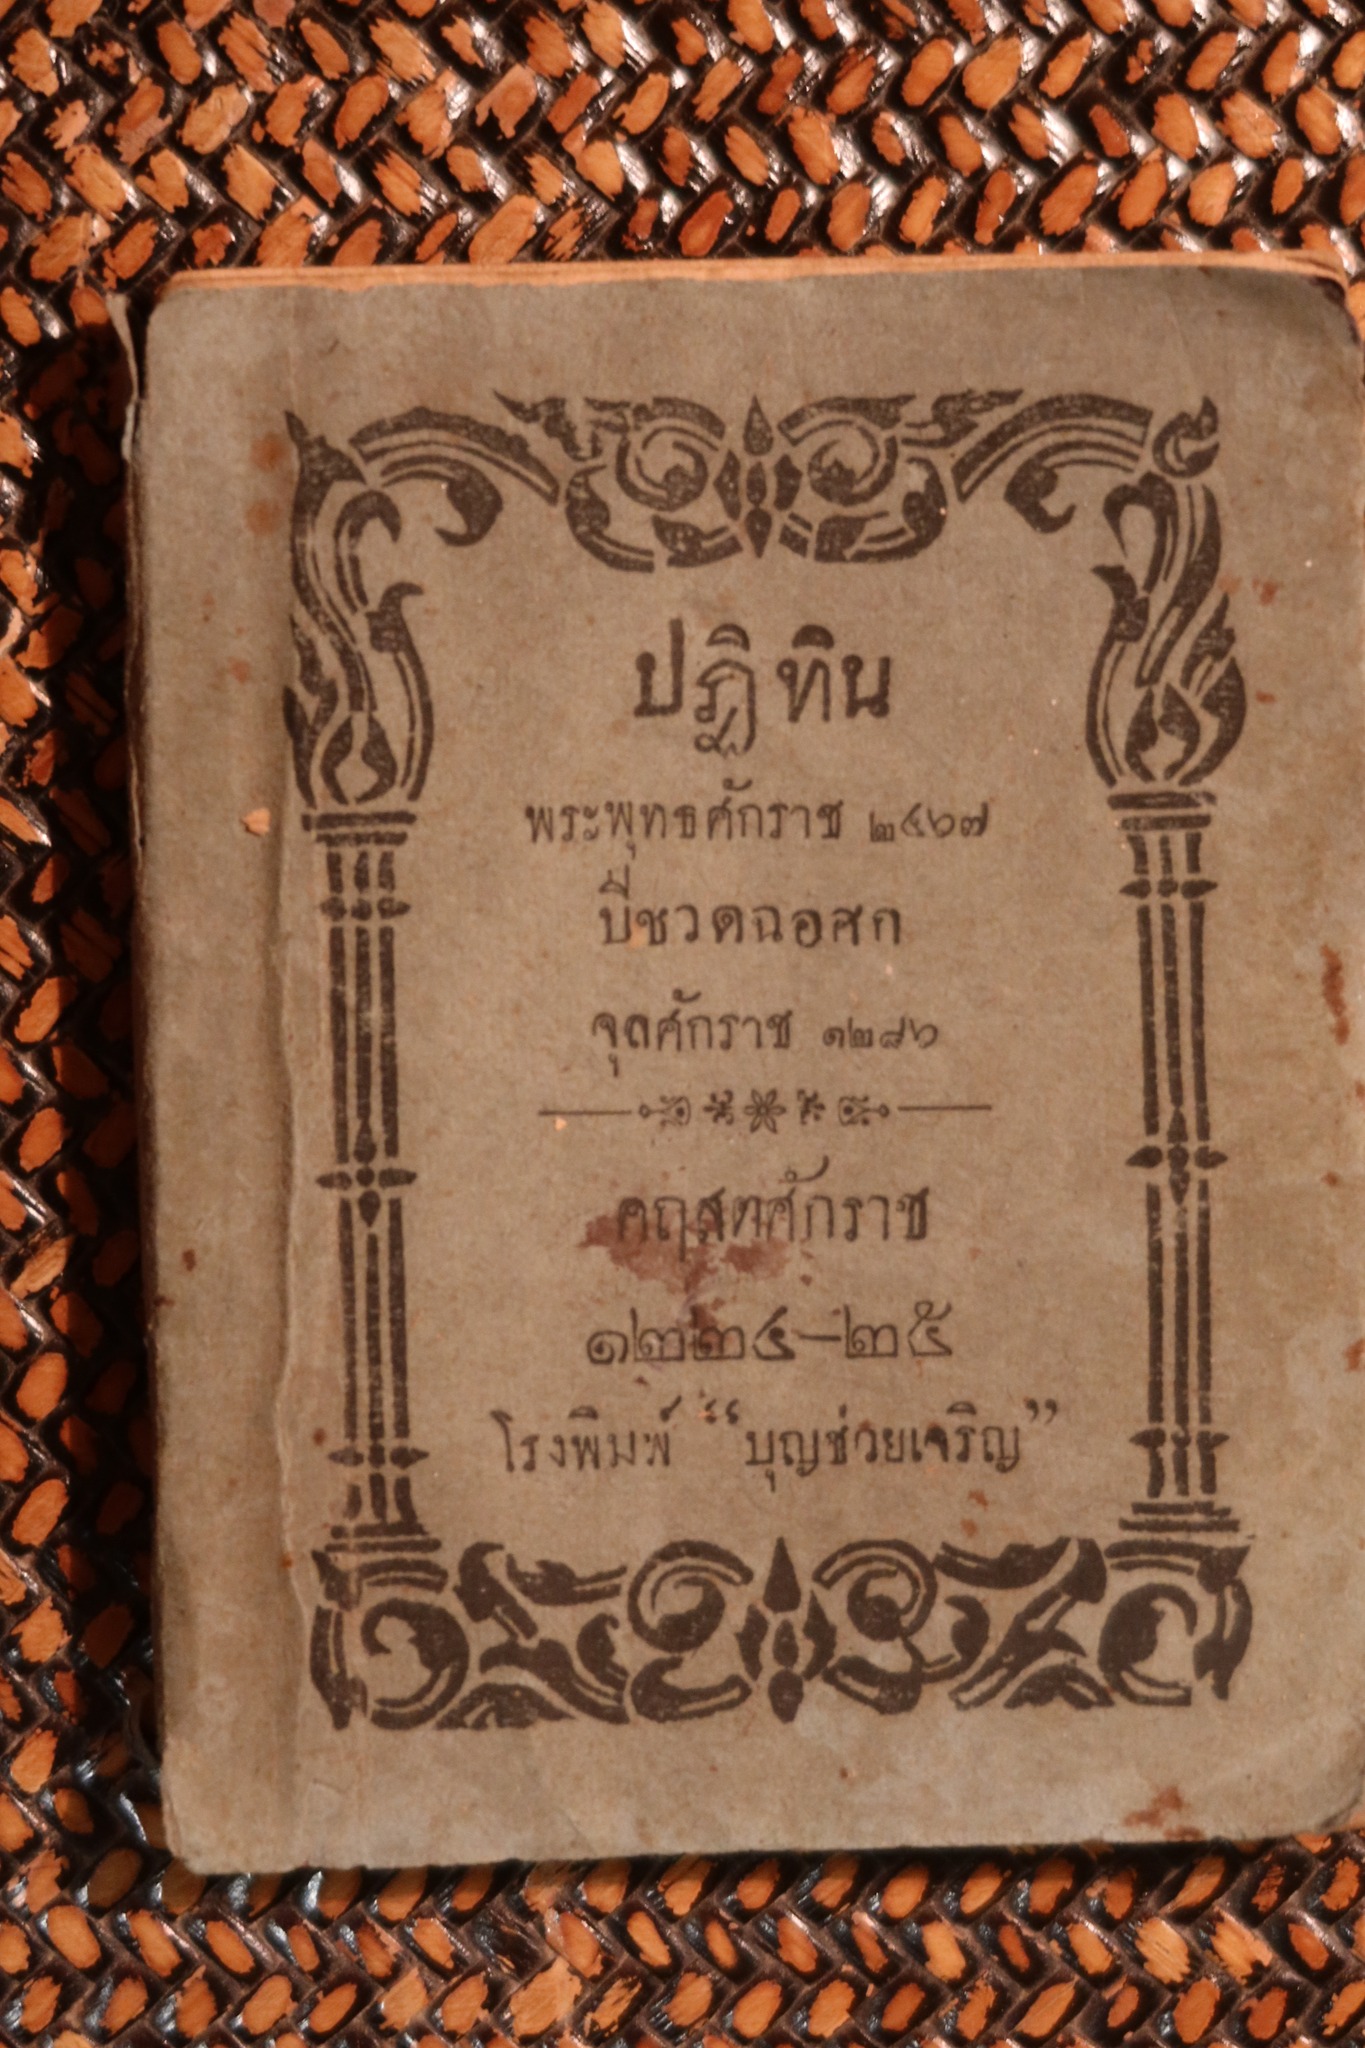 ปฏิทิน
พระพุทธศักราช ๒๔๖๗
ปีชวดฉอศก
จุลศักราช ๑๒๘๖
คฤสตศักราช
๑๒๒๔—๒๕
โรงพิมพ์ “บุญช่วยเจริญ”